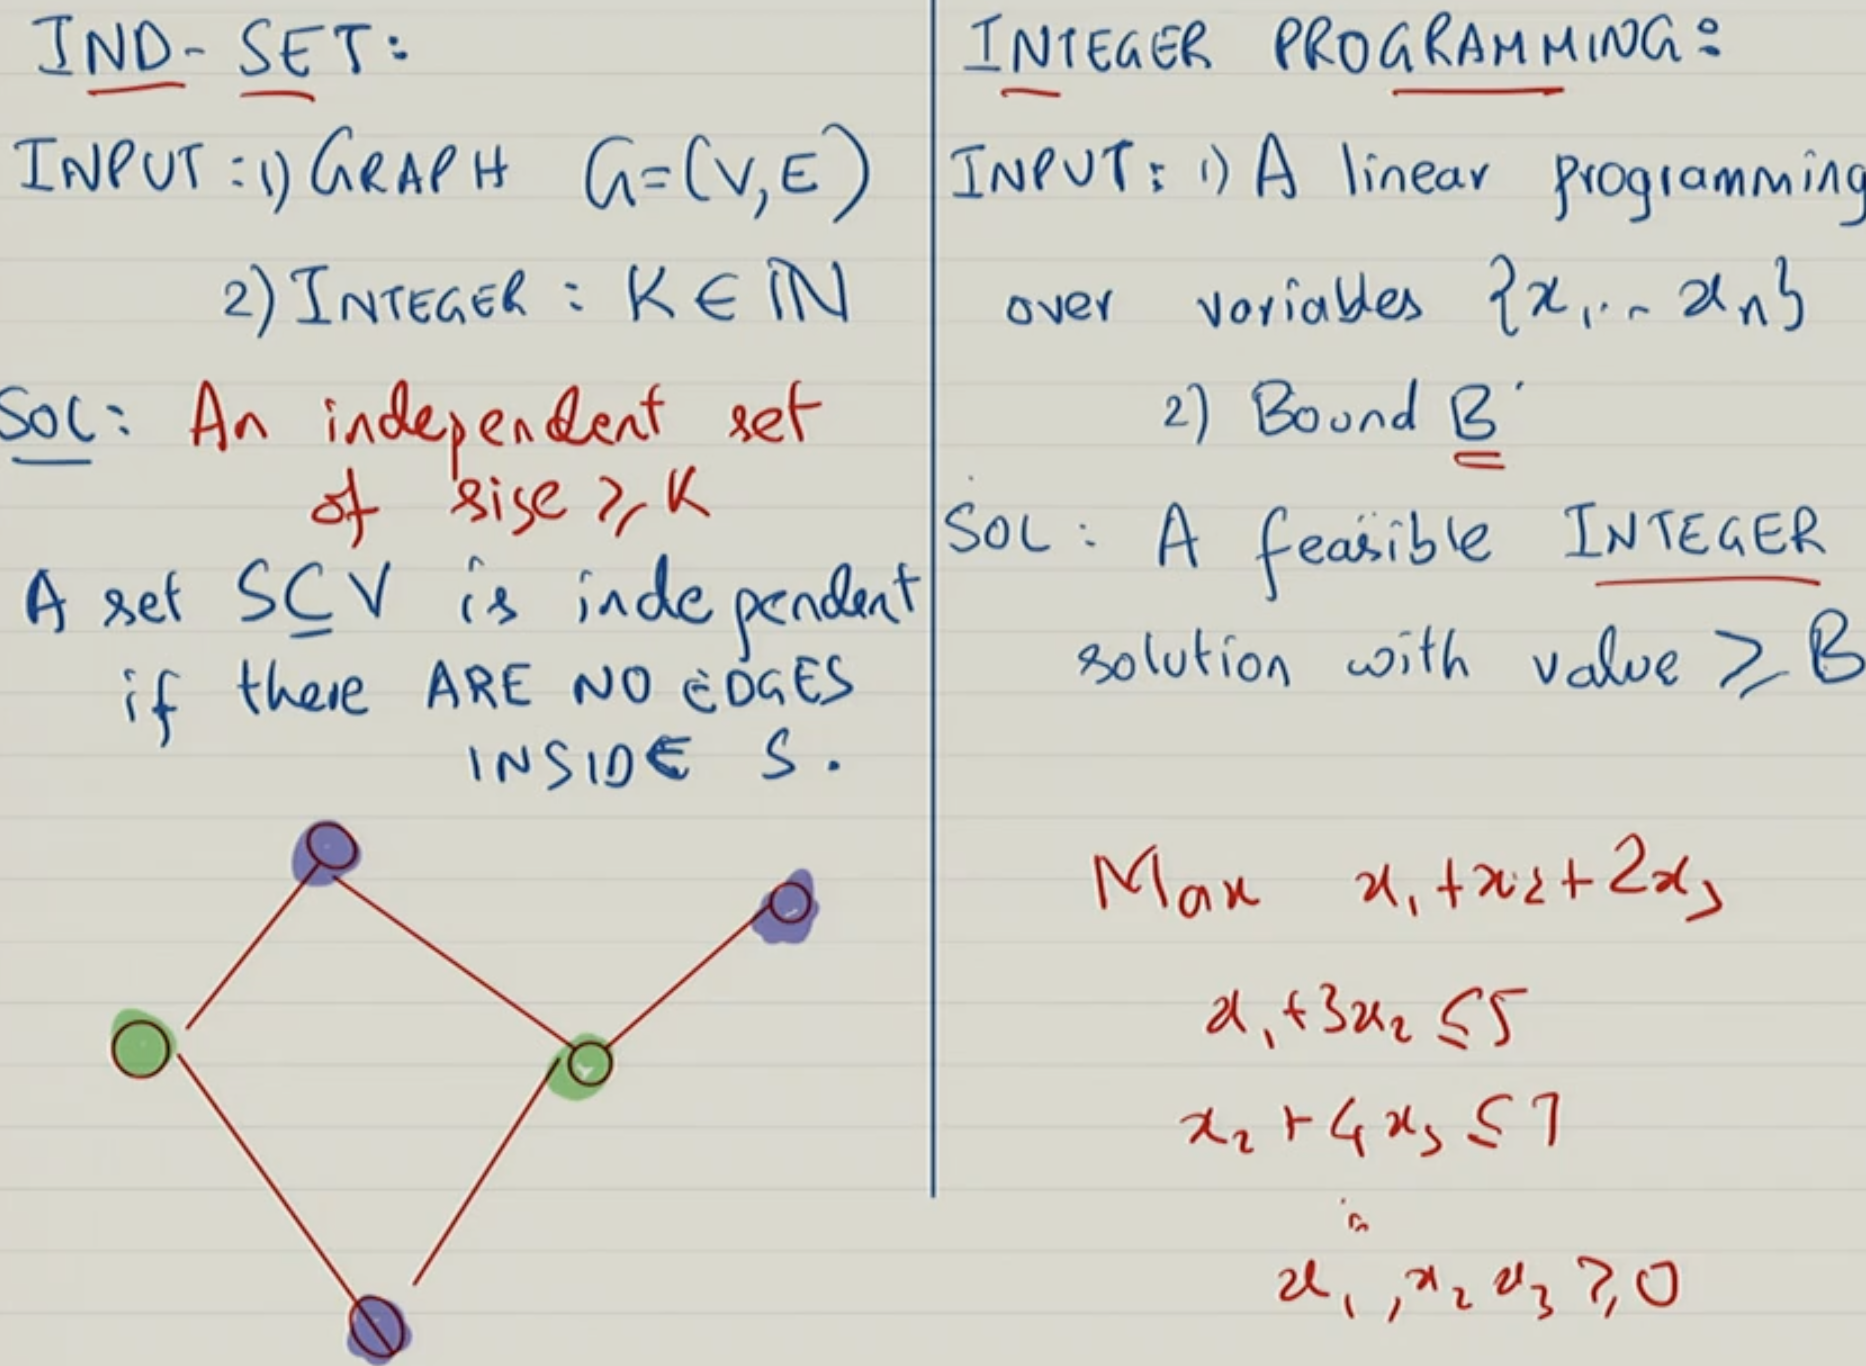 IND-SET:
INPUT: 1) GRAPH G=(V,E)
2) INTEGER: K ∈ ℕ
SOL: An independent set
of size ≥ K
A set S⊆V is independent
if there ARE NO EDGES
INSIDE S.
INTEGER PROGRAMMING:
INPUT: 1) A linear programming
over variables {x₁... xₙ}
2) Bound B
SOL: A feasible INTEGER
solution with value ≥ B
Max x₁+x₂+2x₃
x₁+3x₂ ≤5
x₂+4x₃ ≤7
x₁,x₂ x₃ ≥0